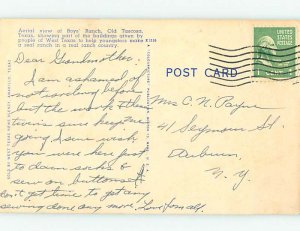 Aerial view of Boys' Ranch, Old Tascosa,
Texas, showing part of the buildings given by
people of West Texas to help youngsters make
a real ranch in a real ranch country.
Dear Grandmother:
I am ashamed of
not writing before
but the work & the
twins sure keep me
going. I sure wish
you were here just
to darn socks &
sew on buttons.
I don't get time to get any
sewing done any more. Love from all.
POST CARD
UNITED STATES
POSTAGE
Mrs C. N. Payne
41 Seymour St.
Auburn,
N. Y.